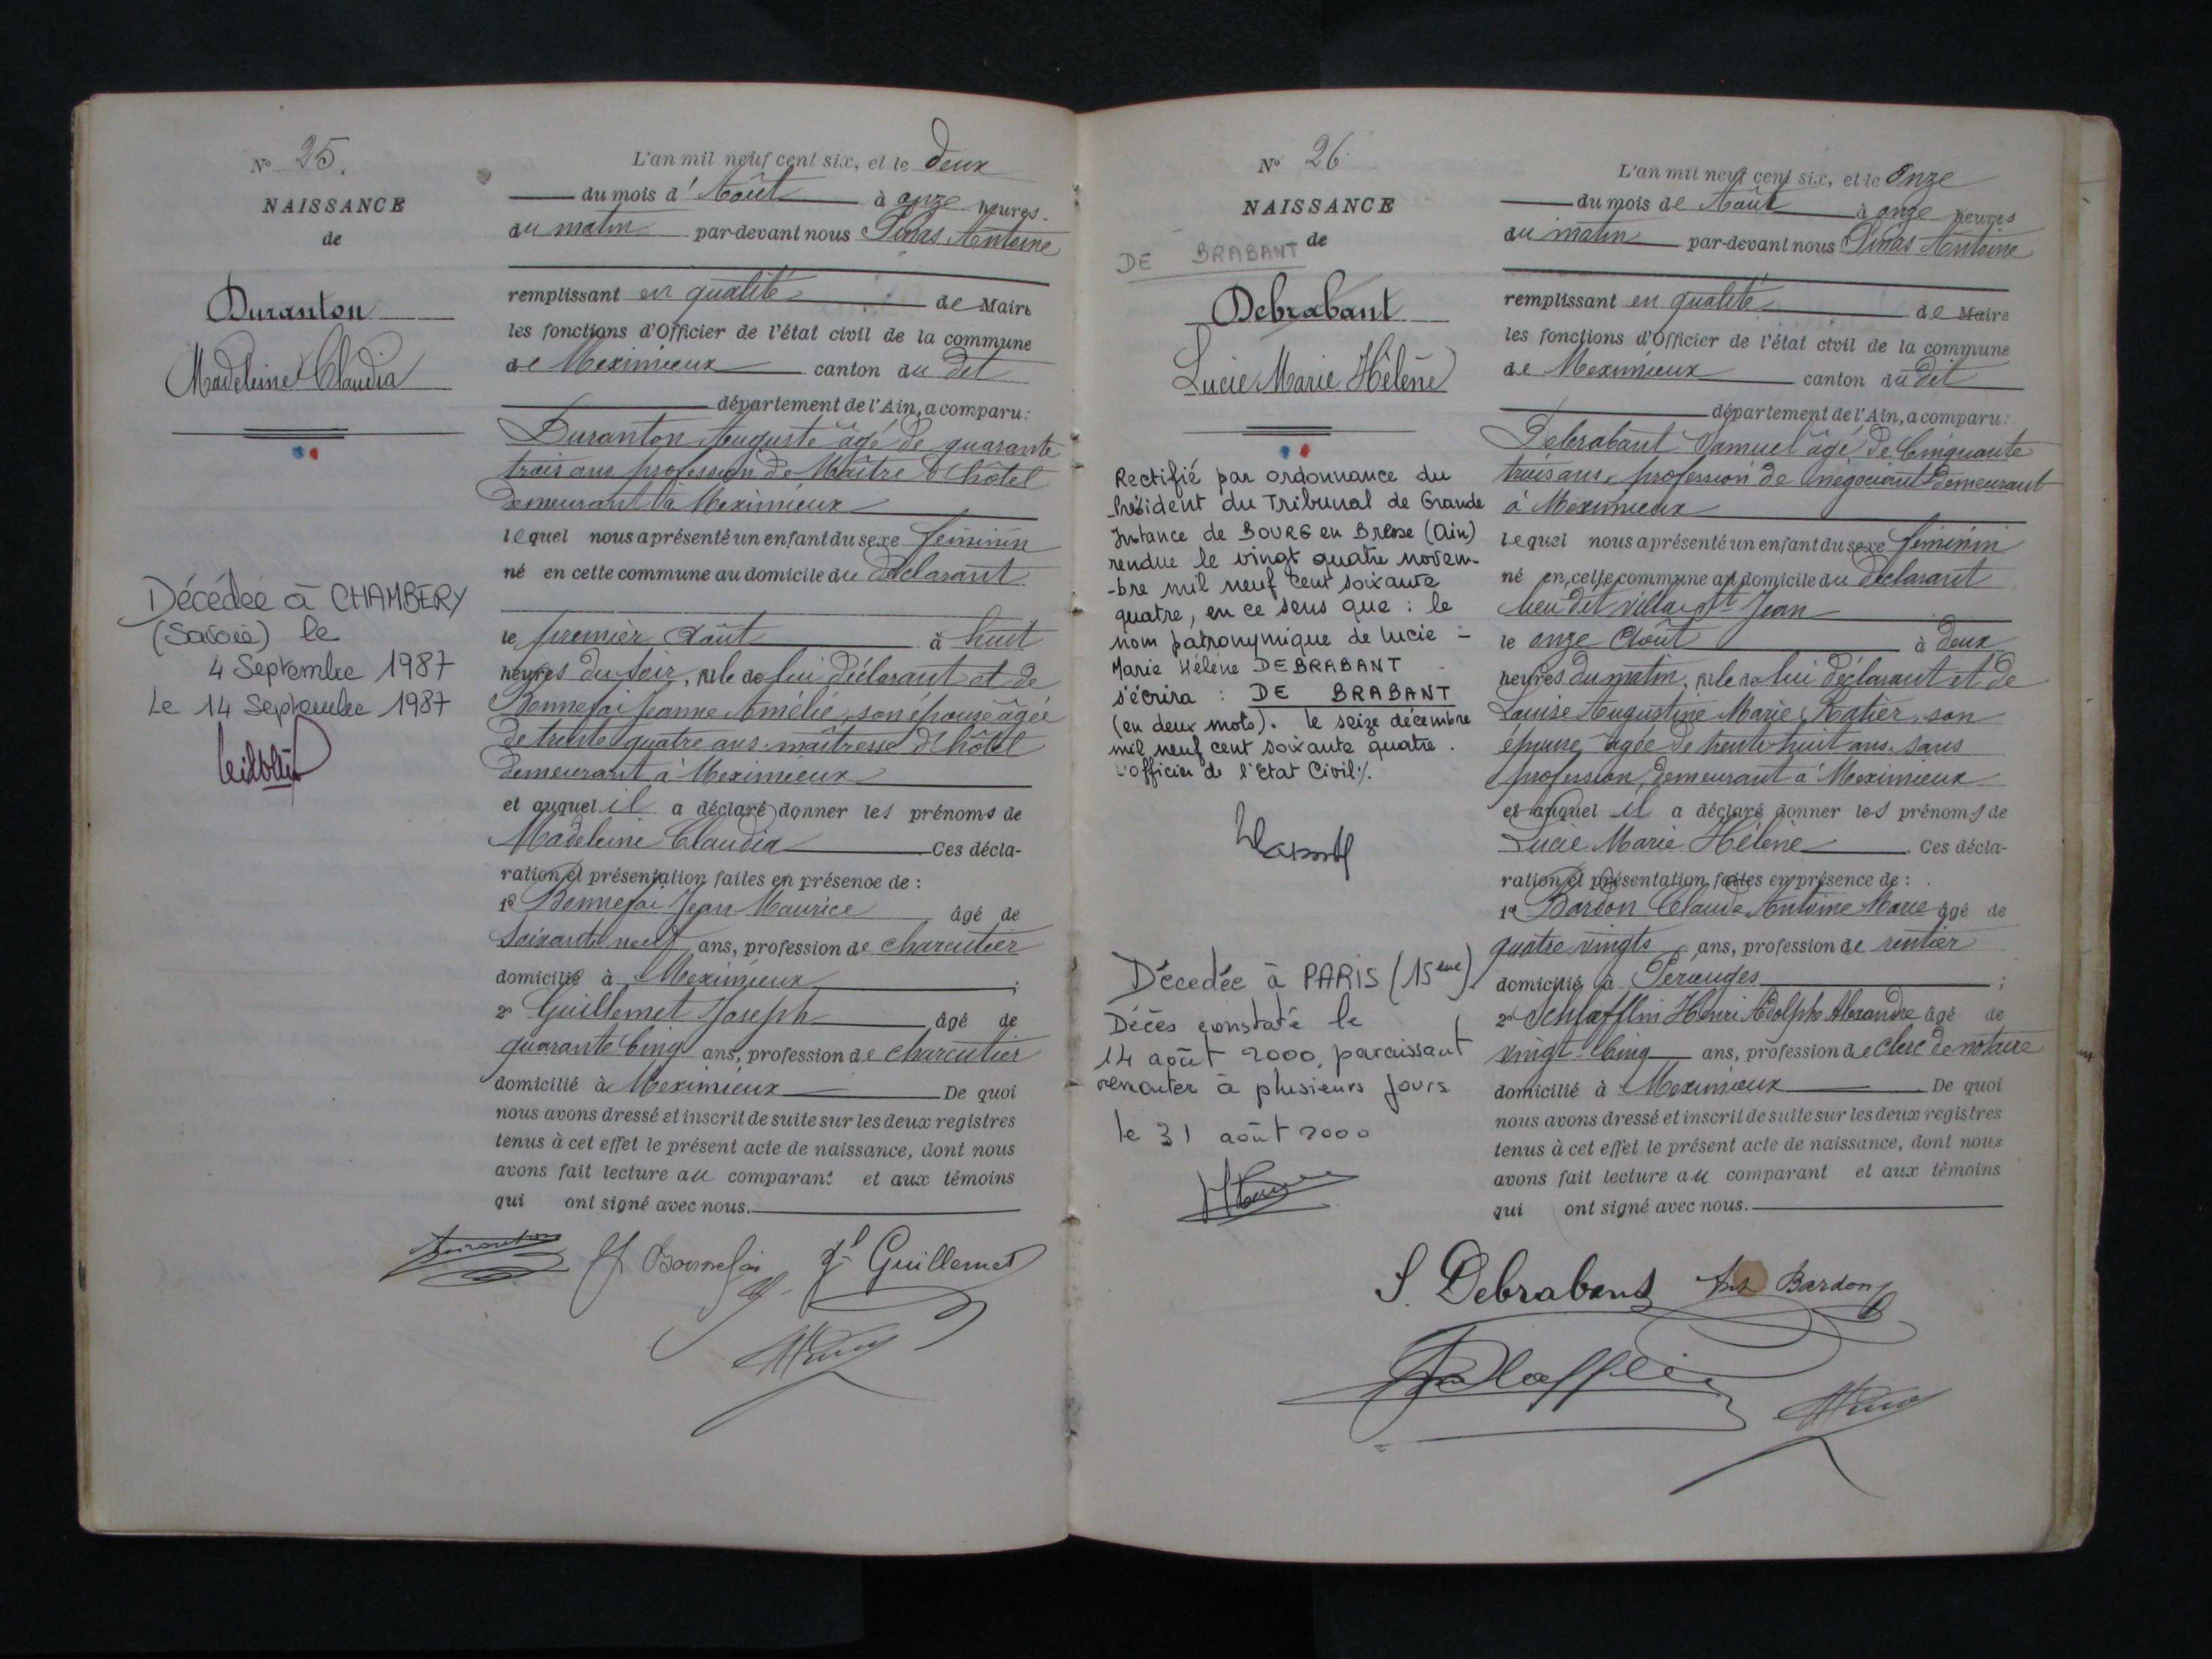 N° 25.
NAISSANCE
de
Duranton
Madeleine Claudia
Décédée à CHAMBERY
(Savoie) le
4 Septembre 1987
Le 14 Septembre 1987
L'an mil neuf cent six, et le deux
du mois d'Août à onze heures
du matin par-devant nous Antoine
remplissant en qualité de Maire
les fonctions d'Officier de l'état civil de la commune
de Meximieux canton du dit
département de l'Ain, a comparu :
Duranton Auguste âgé de quarante
trois ans profession de Maître d'hôtel
demeurant à Meximieux
lequel nous a présenté un enfant du sexe féminin
né en cette commune au domicile du déclarant
le premier Août à huit
heures du soir, fille de lui déclarant et de
Bonnefoi Jeanne Amélie, son épouse âgée
de trente quatre ans maîtresse d'hôtel
demeurant à Meximieux
et auquel il a déclaré donner les prénoms de
Madeleine Claudia Ces décla-
ration et présentation faites en présence de :
1° Bonnefoi Jean Maurice âgé de
Soixante neuf ans, profession de charcutier
domicilié à Meximieux ;
2° Guillemet Joseph âgé de
quarante cinq ans, profession de charcutier
domicilié à Meximieux De quoi
nous avons dressé et inscrit de suite sur les deux registres
tenus à cet effet le présent acte de naissance, dont nous
avons fait lecture au comparant et aux témoins
qui ont signé avec nous.
Duranton Bonnefoi Guillemet
N° 26
NAISSANCE
de
DE BRABANT
Debrabant
Lucie Marie Hélène
Rectifié par ordonnance du
Président du Tribunal de Grande
Instance de BOURG en Bresse (Ain)
rendue le vingt quatre novem-
-bre mil neuf cent soixante
quatre, en ce sens que : le
nom patronymique de Lucie -
Marie Hélène DEBRABANT
s'écrira : DE BRABANT
(en deux mots). le seize décembre
mil neuf cent soixante quatre.
L'officier de l'Etat Civil /.
Décedée à PARIS (15ème)
Décès constaté le
14 août 2000, paraissant
remonter à plusieurs jours
le 31 août 2000
L'an mil neuf cent six, et le Onze
du mois de Août à onze heures
du matin par-devant nous Antoine
remplissant en qualité de Maire
les fonctions d'Officier de l'état civil de la commune
de Meximieux canton du dit
département de l'Ain, a comparu :
Debrabant Samuel âgé de Cinquante
trois ans, profession de négociant demeurant
à Meximieux
lequel nous a présenté un enfant du sexe féminin
né en cette commune au domicile du déclarant
lieu dit villa St Jean
le onze Août à deux
heures du matin, fille de lui déclarant et de
Louise Augustine Marie Ratier, son
épouse, âgée de trente huit ans, sans
profession, demeurant à Meximieux
et auquel il a déclaré donner les prénoms de
Lucie Marie Hélène. Ces décla-
ration et présentation faites en présence de :
1° Bardon Claude Antoine Marie âgé de
quatre vingts ans, profession de rentier
domicilié à Pérouges ;
2° Schlafflin Henri Adolphe Alexandre âgé de
vingt-cinq ans, profession de clerc de notaire
domicilié à Meximieux De quoi
nous avons dressé et inscrit de suite sur les deux registres
tenus à cet effet le présent acte de naissance, dont nous
avons fait lecture au comparant et aux témoins
qui ont signé avec nous.
S. Debrabant Bardon